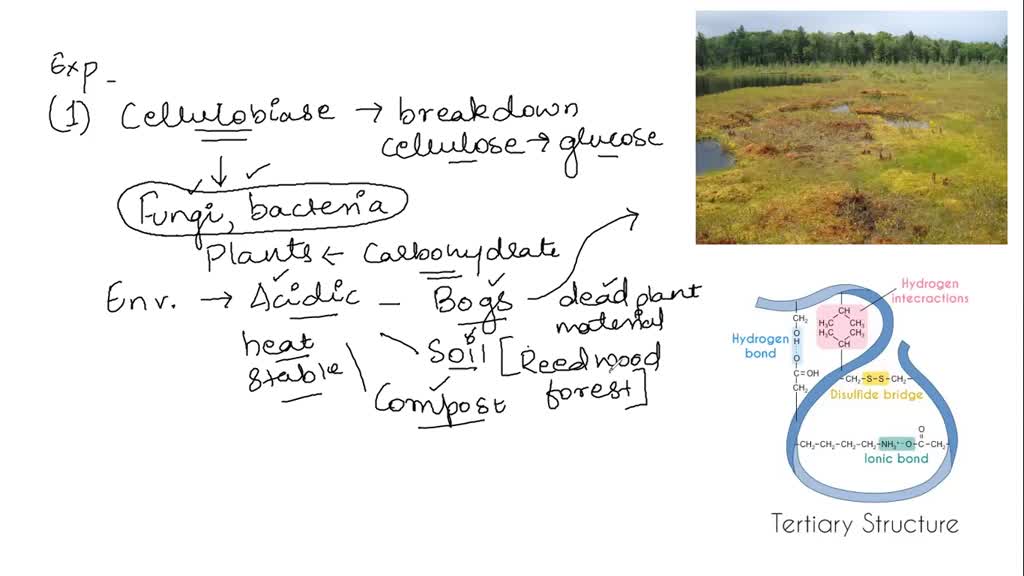 Exp -
(1) Cellulobiase → breakdown
cellulose → glucose
↓
Fungi, bacteria
Plants ← Carbohydrate
Env. → Acidic - Bogs - dead plant
material
heat
stable
Soil [Reedwood
forest]
Compost
Hydrogen
intecractions
Hydrogen
bond
CH
H₃C CH₃
H₃C CH₃
CH
CH₂
O
H
O
C=OH
CH₂
CH₂-S-S-CH₂
Disulfide bridge
O
CH₂-CH₂-CH₂-CH₂-NH₃⁺ ⁻O-C-CH₂
Ionic bond
Tertiary Structure